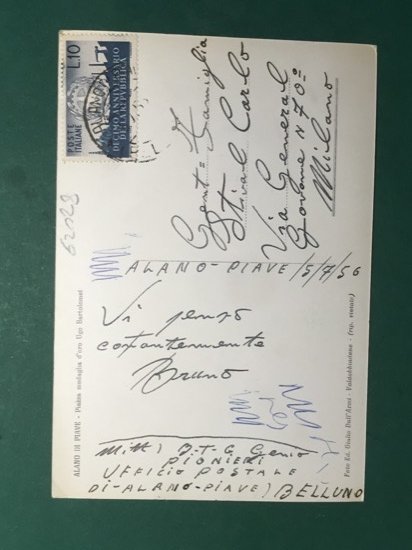 POSTE
ITALIANE
L.10
DECIMO ANNIVERSARIO
DELLA REPUBBLICA
Gent. Famiglia
Stival Carlo
Via General
Govone N 70º
Milano
62023
ALANO-PIAVE 15/7/56
Vi penso
costantemente
Bruno
Mitt)
Genio
PIONIERI
UFFICIO POSTALE
DI-ALANO-PIAVE) BELLUNO
ALANO DI PIAVE - Piazza medaglia d'oro Ugo Bartolomei
Foto Ed. Dall'Armi - Valdobbiadene - (rip. vietata)